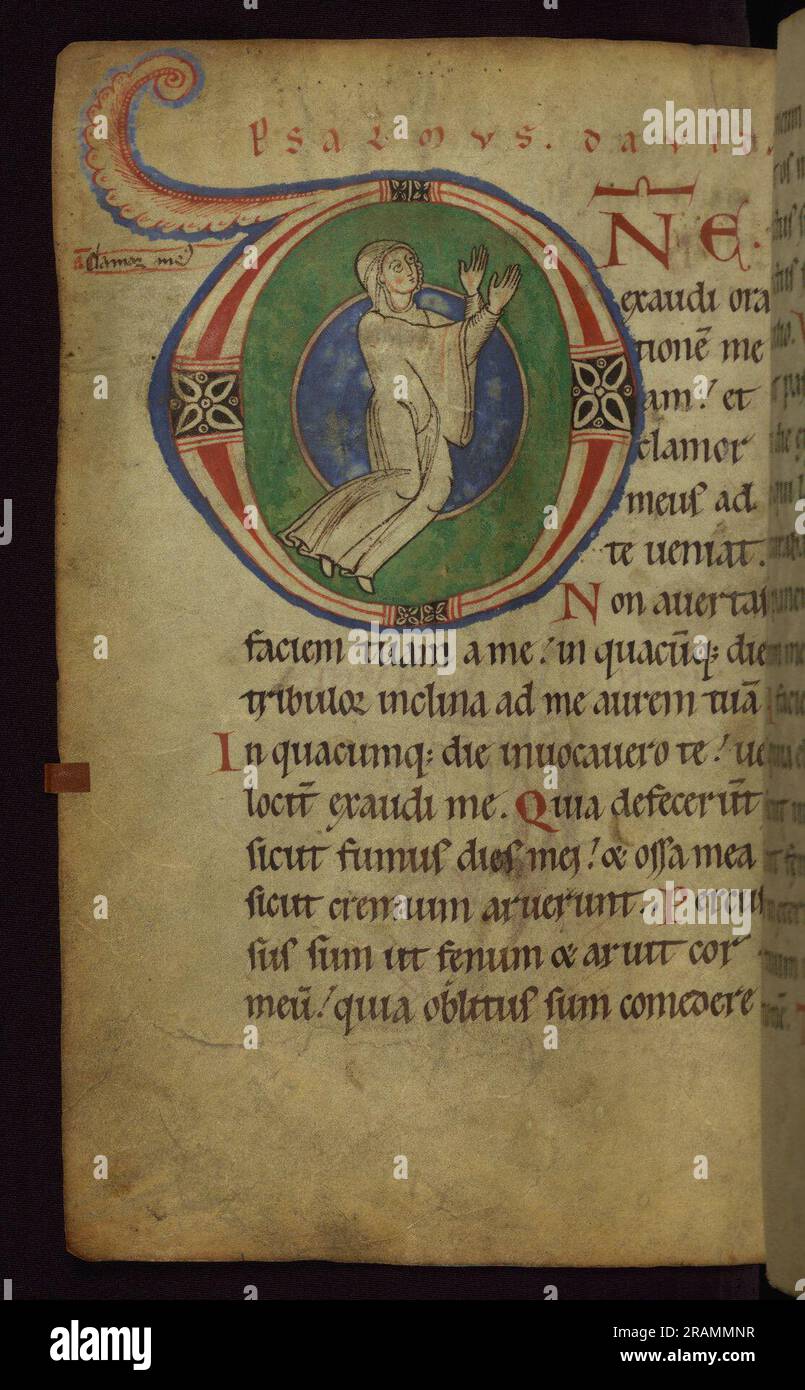 PSALMVS. DAVID.
DN̄E.
a clamor me
exaudi ora
tionē me
am! et
clamor
meuſ ad
te ueniat.
Non auertaſ
faciem tuam a me! in quacūq; die
tribulor inclina ad me aurem tuā
In quacumq; die inuocauero te! ue
locit̄ exaudi me. Quia defecer̄t
ſicut fumuſ dieſ mei! & oſſa mea
ſicut cremium aruerunt. Percuſ
ſuſ ſum ut fenum & aruit cor
meū! quia oblituſ ſum comedere
alamy
Image ID: 2RAMMNR
www.alamy.com